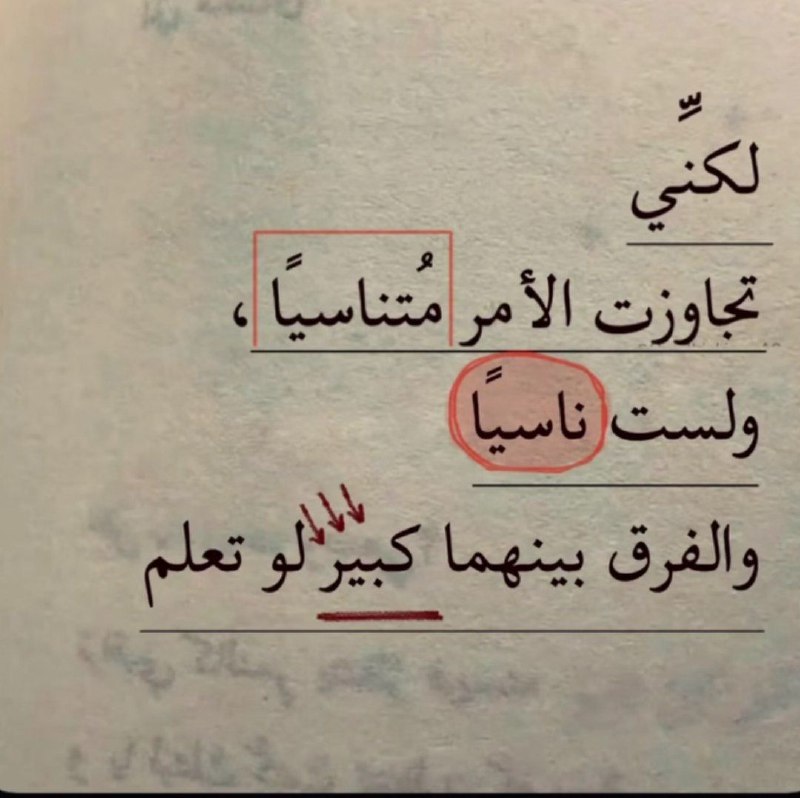 لكنِّي
تجاوزت الأمر مُتناسيًا ،
ولست ناسيًا
والفرق بينهما كبير لو تعلم